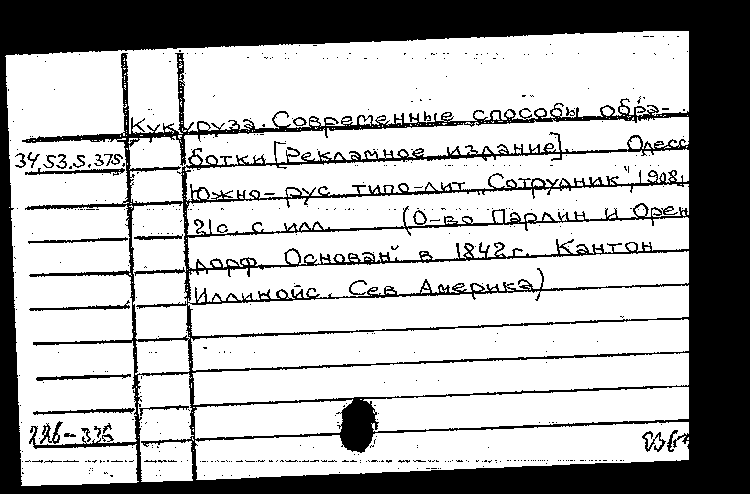 Кукуруза. Современные способы обра-
34.53.5.375. ботки [Рекламное издание]. Одесс
Южно-рус. типо-лит. "Сотрудник", 1908,
21с. с илл. (О-во Парлин и Орен
дорф. Основан. в 1842 г. Кантон
Иллинойс. Сев. Америка)
226-336